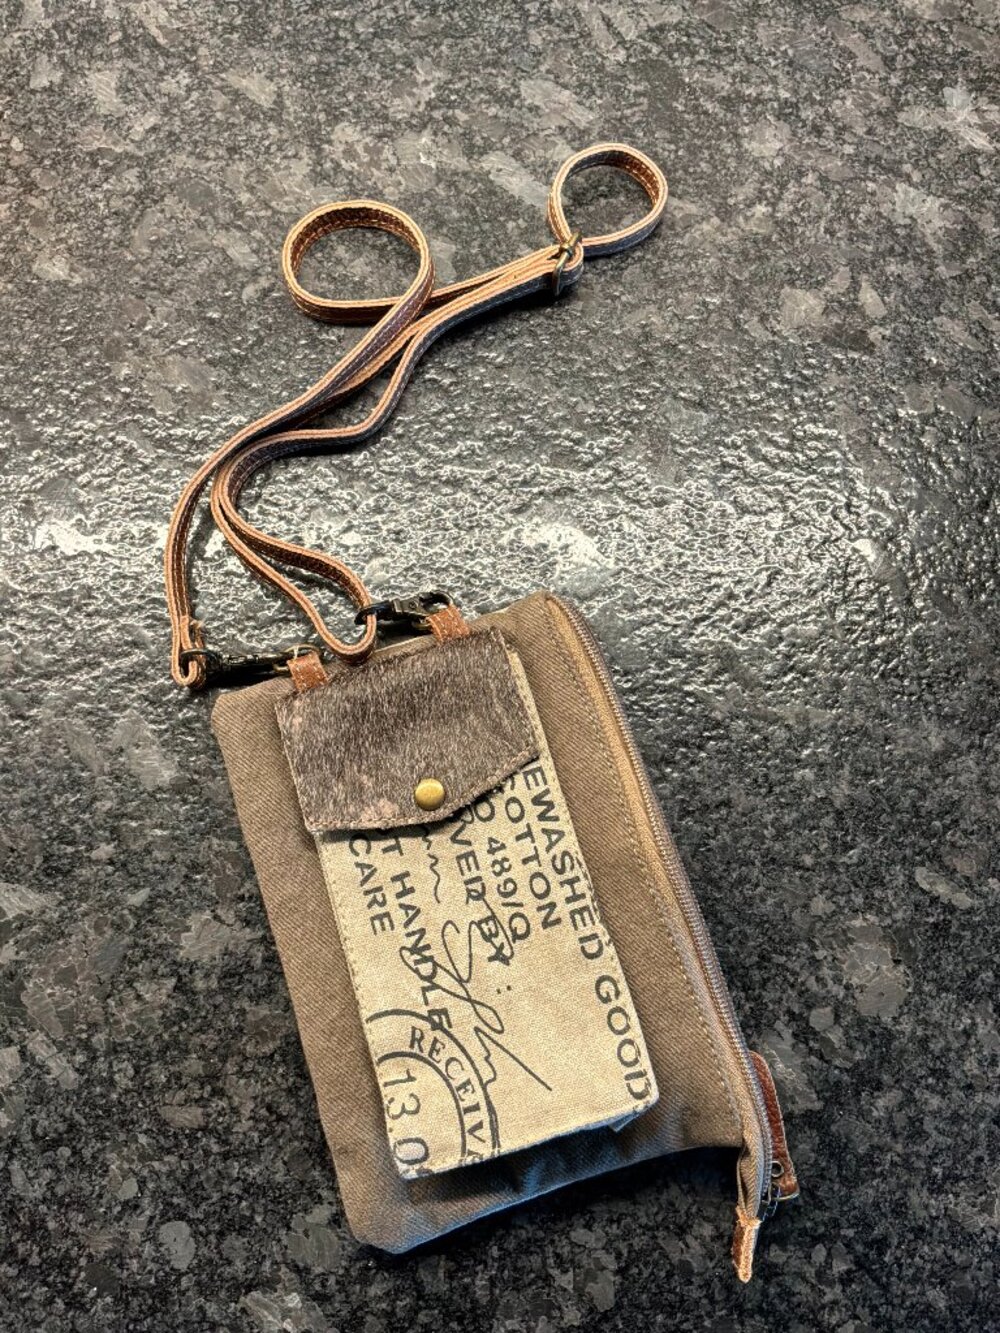 EWASHED GOOD
COTTON
O 489/Q
OVER BY :
T HANDLE
CARE
RECEIV
13.0